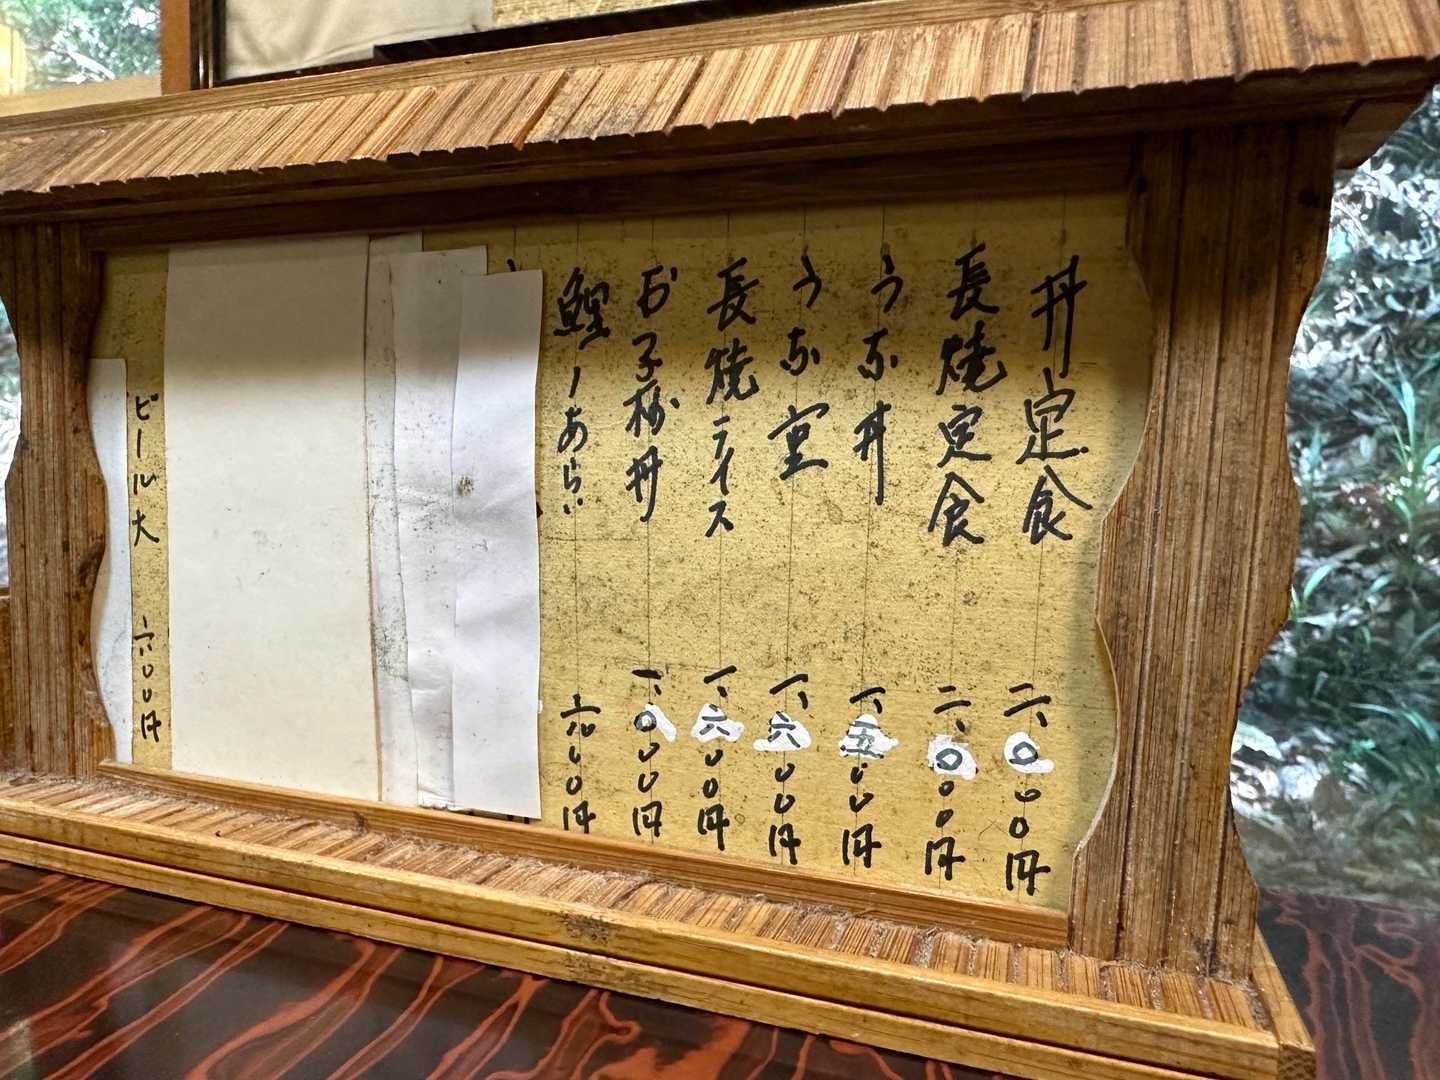 丼定食 二、〇〇〇円
長焼定食 二、〇〇〇円
うな丼 一、五〇〇円
うな重 一、六〇〇円
長焼ライス 一、六〇〇円
お子様丼 一、〇〇〇円
鯉ノあらい 六〇〇円
ビール大 六〇〇円